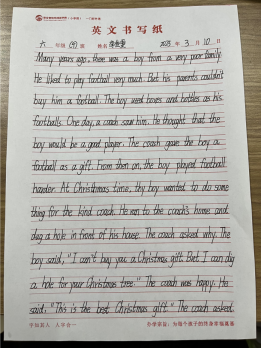 英文书写纸
六 年级 班 姓名 2023 年 3 月 10 日
Many years ago, there was a boy from a very poor family.
He liked to play football very much. But his parents couldn't
buy him a football. The boy used boxes and bottles as his
footballs. One day, a coach saw him. He thought that the
boy would be a good player. The coach gave the boy a
football as a gift. From then on, the boy played football
harder. At Christmas time, the boy wanted to do some
thing for the kind coach. He ran to the coach's home and
dug a hole in front of his house. The coach asked why. The
boy said, "I can't buy you a Christmas gift. But I can dig
a hole for your Christmas tree." The coach was happy. He
said, "This is the best Christmas gift." The coach asked